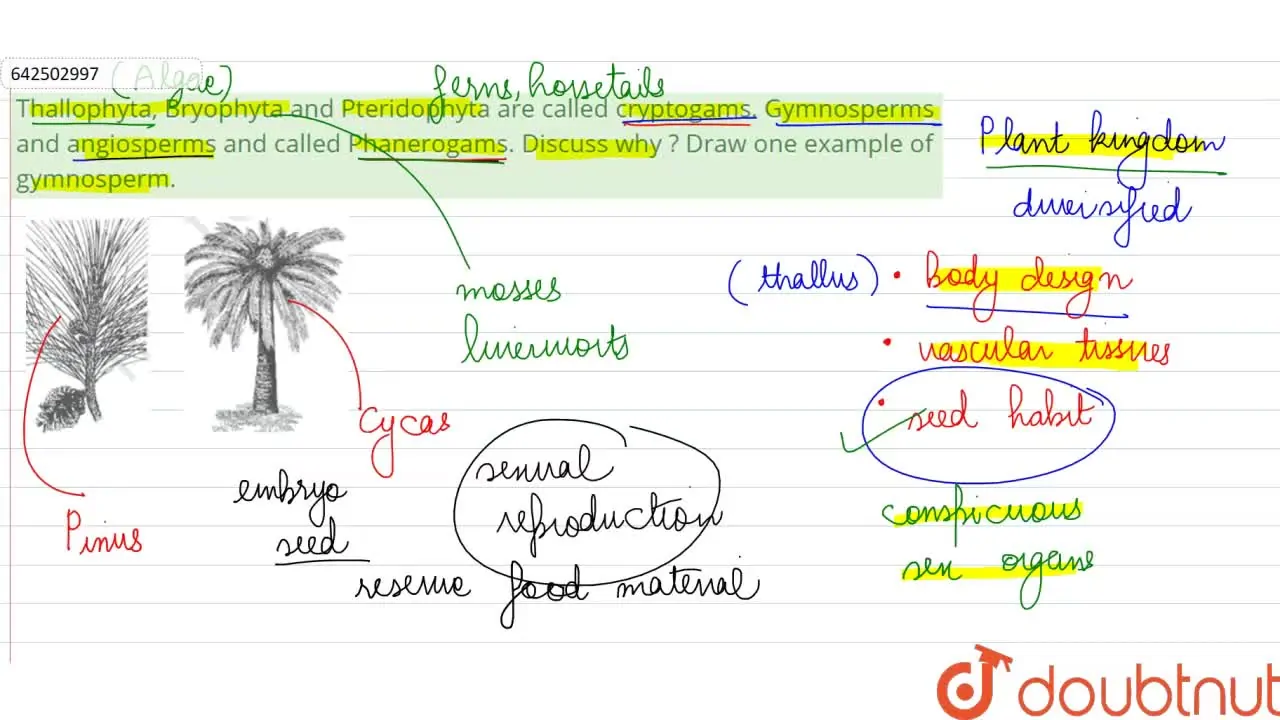 642502997
(Algae)
ferns, horsetails
Thallophyta, Bryophyta and Pteridophyta are called cryptogams. Gymnosperms
and angiosperms and called Phanerogams. Discuss why ? Draw one example of
gymnosperm.
Plant kingdom
diversified
(thallus) • body design
• vascular tissues
• seed habit
conspicuous
sex organs
mosses
liverworts
Cycas
Pinus
embryo
seed
sexual
reproduction
reserve food material
doubtnut